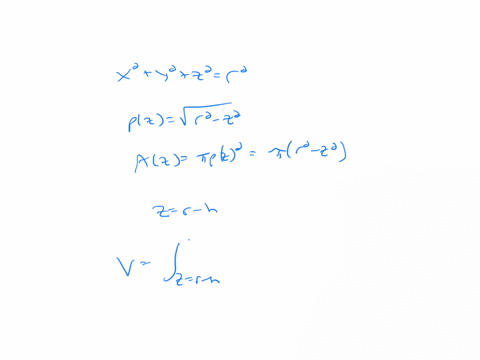 x² + y² + z² = r²
ρ(z) = √(r² - z²)
A(z) = πρ(z)² = π(r² - z²)
z = r - h
V = ∫_{z=r-h}